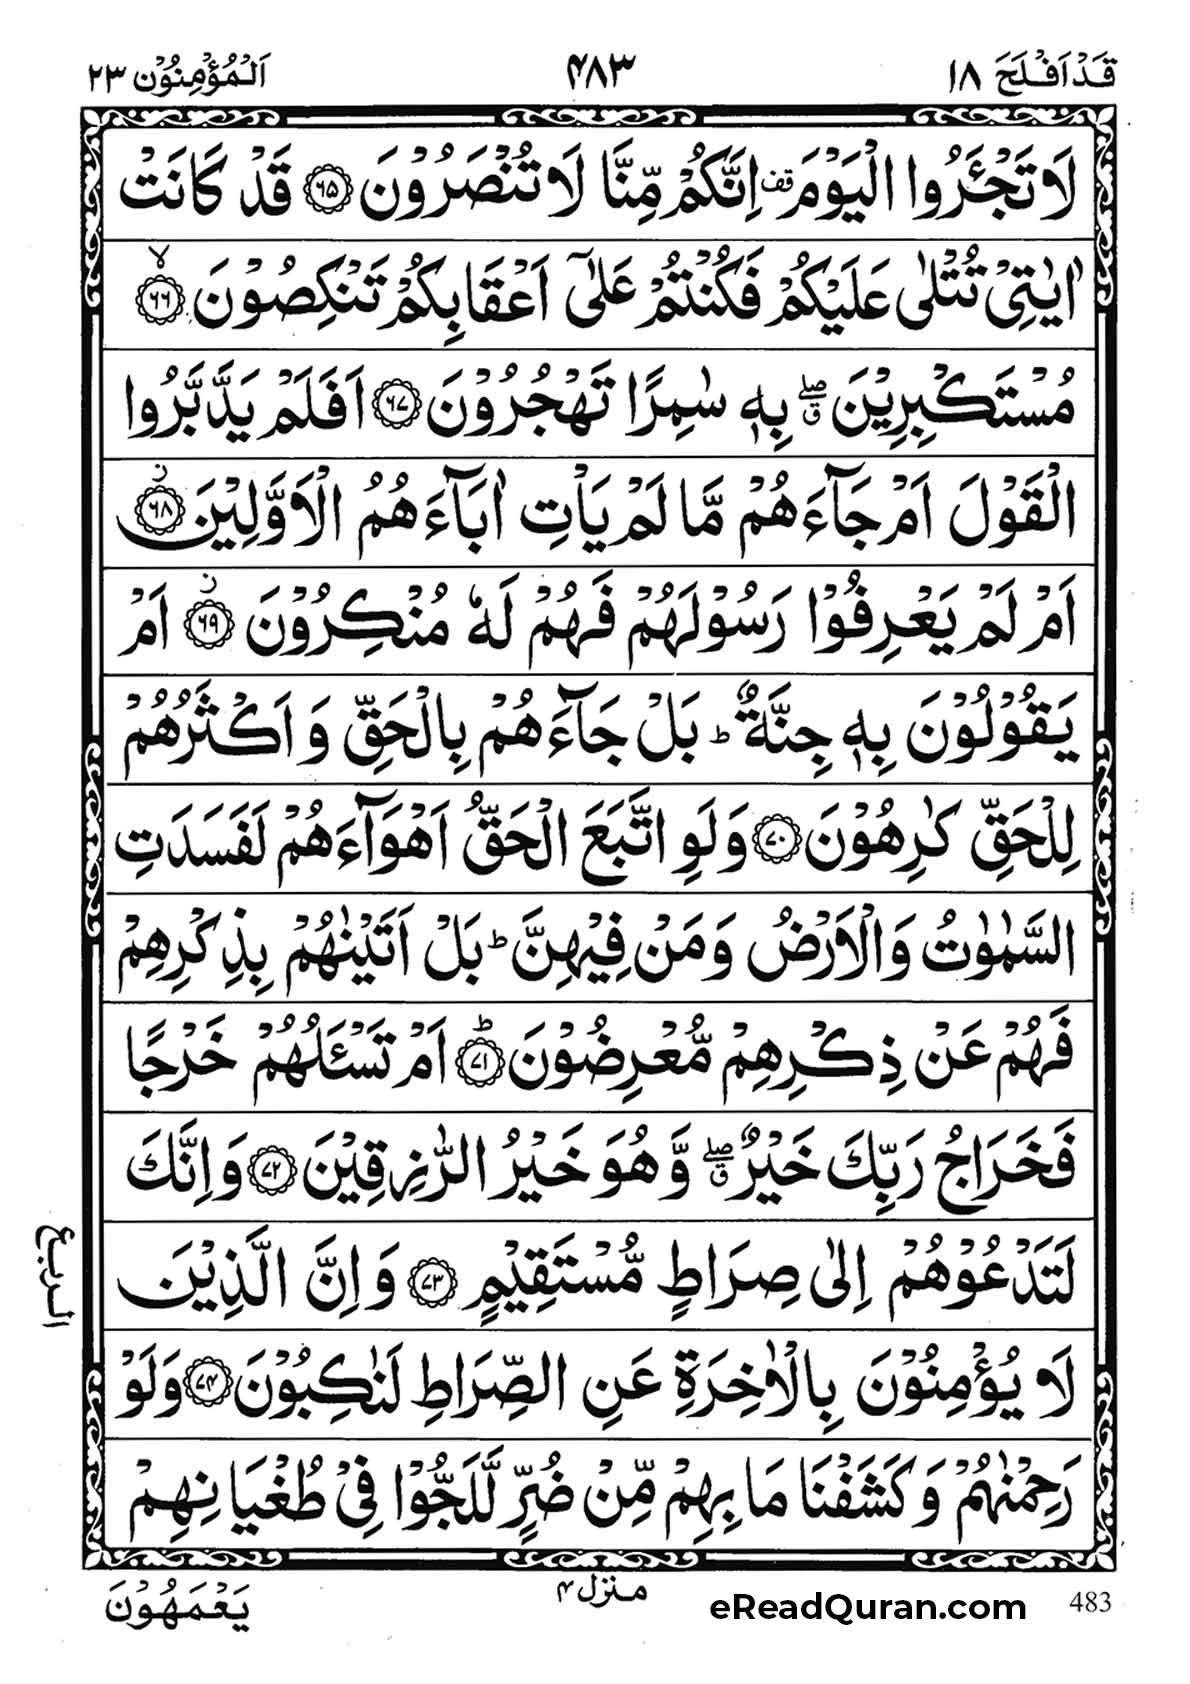 قَدْ اَفْلَحَ ١٨
٤٨٣
اَلْمُؤْمِنُوْن ٢٣
لَا تَجْـَٔرُوا الْيَوْمَ قف اِنَّكُمْ مِّنَّا لَا تُنْصَرُوْنَ ﴿٦٥﴾ قَدْ كَانَتْ
اٰيٰتِيْ تُتْلٰى عَلَيْكُمْ فَكُنْتُمْ عَلٰٓى اَعْقَابِكُمْ تَنْكِصُوْنَ ﴿٦٦﴾ ۙ
مُسْتَكْبِرِيْنَ ۖق بِهٖ سٰمِرًا تَهْجُرُوْنَ ﴿٦٧﴾ اَفَلَمْ يَدَّبَّرُوا
الْقَوْلَ اَمْ جَآءَهُمْ مَّا لَمْ يَاْتِ اٰبَآءَهُمُ الْاَوَّلِيْنَ ﴿٦٨﴾ ز
اَمْ لَمْ يَعْرِفُوْا رَسُوْلَهُمْ فَهُمْ لَهٗ مُنْكِرُوْنَ ﴿٦٩﴾ ز اَمْ
يَقُوْلُوْنَ بِهٖ جِنَّةٌ ؕ بَلْ جَآءَهُمْ بِالْحَقِّ وَاَكْثَرُهُمْ
لِلْحَقِّ كٰرِهُوْنَ ﴿٧٠﴾ وَلَوِ اتَّبَعَ الْحَقُّ اَهْوَآءَهُمْ لَفَسَدَتِ
السَّمٰوٰتُ وَالْاَرْضُ وَمَنْ فِيْهِنَّ ؕ بَلْ اَتَيْنٰهُمْ بِذِكْرِهِمْ
فَهُمْ عَنْ ذِكْرِهِمْ مُّعْرِضُوْنَ ﴿٧١﴾ ؕ اَمْ تَسْـَٔلُهُمْ خَرْجًا
فَخَرَاجُ رَبِّكَ خَيْرٌ ۖق وَّهُوَ خَيْرُ الرّٰزِقِيْنَ ﴿٧٢﴾ وَاِنَّكَ
لَتَدْعُوْهُمْ اِلٰى صِرَاطٍ مُّسْتَقِيْمٍ ﴿٧٣﴾ وَاِنَّ الَّذِيْنَ
الربع
لَا يُؤْمِنُوْنَ بِالْاٰخِرَةِ عَنِ الصِّرَاطِ لَنٰكِبُوْنَ ﴿٧٤﴾ وَلَوْ
رَحِمْنٰهُمْ وَكَشَفْنَا مَا بِهِمْ مِّنْ ضُرٍّ لَّلَجُّوْا فِيْ طُغْيَانِهِمْ
يَعْمَهُوْنَ
منزل ٤
eReadQuran.com
483